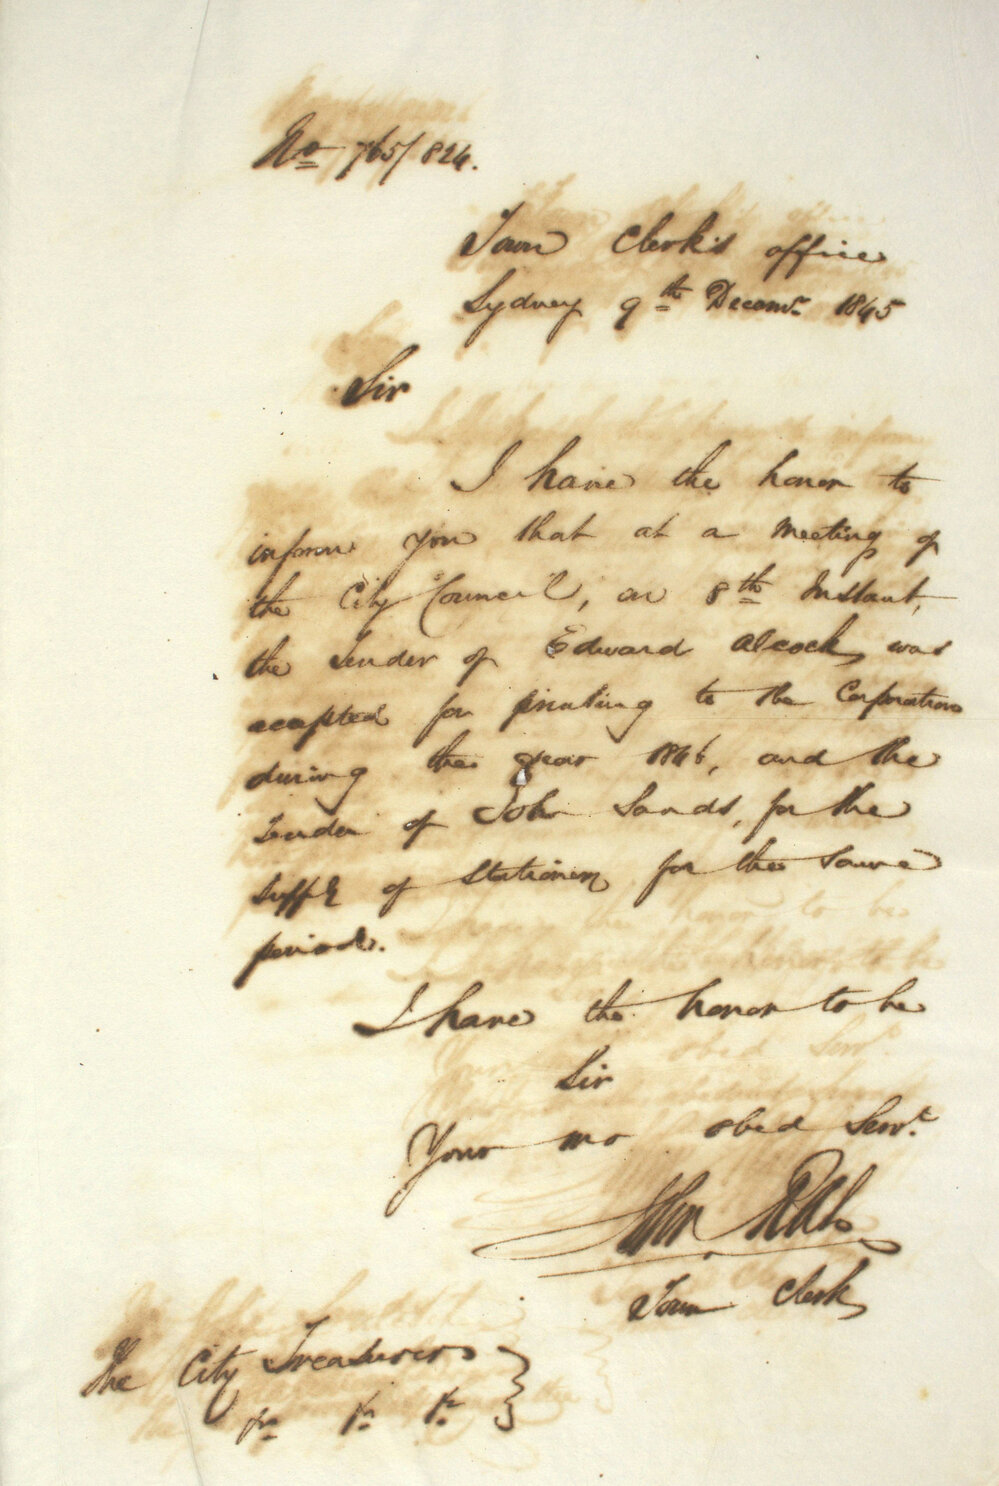 No 765/824.
Town Clerk's office
Sydney 9th Decemr 1845
Sir
I have the honor to
inform you that at a meeting of
the City Council, on 8th Instant,
the Tender of Edward Alcock, was
accepted for printing to the Corporation
during the year 1846, and the
Tender of John Sands, for the
supply of Stationery for the same
period.
I have the honor to be
Sir
Your mo obed Servt.
John Rae
Town Clerk
The City Treasurer